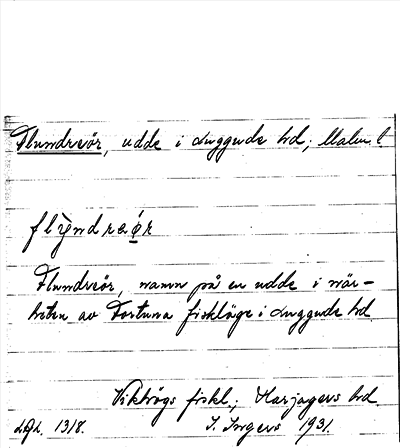 Flundreör, udde i Luggude hd, Malm. l
flỳndraǿr
Flundreör, namn på en udde i när-
heten av Fortuna fiskläge i Luggude hd.
Vikhögs fiskl.; Harjagers hd.
LAL. 1318. I. Ingers 1931.